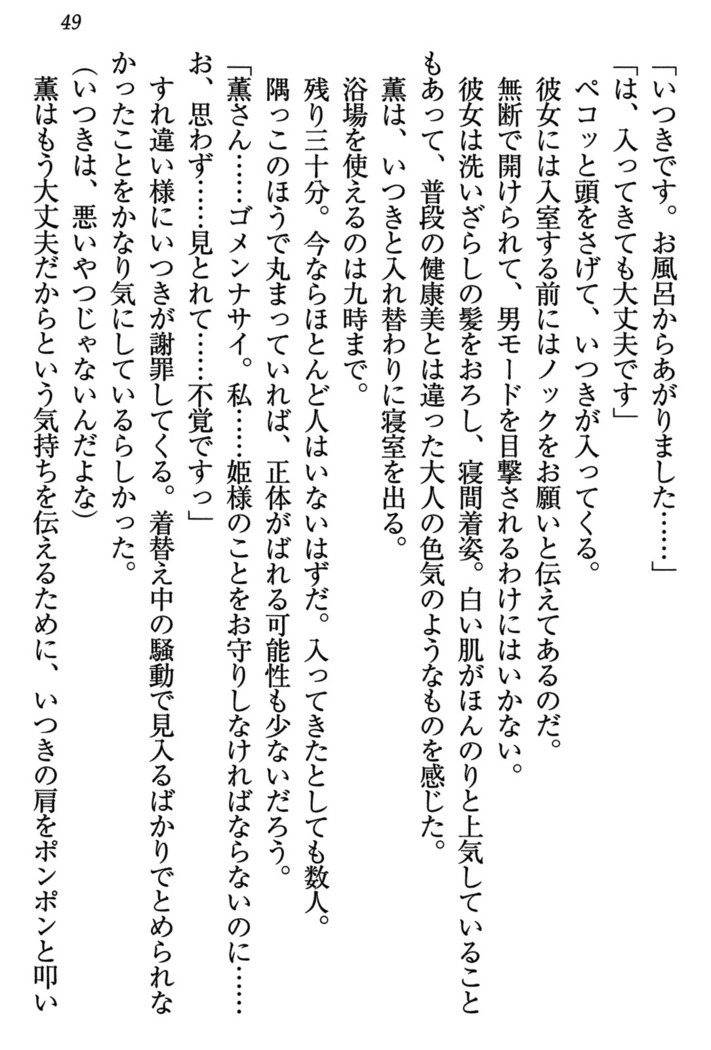 49
「いつきです。お風呂からあがりました……」
「は、入ってきても大丈夫です」
ペコッと頭をさげて、いつきが入ってくる。
彼女には入室する前にはノックをお願いと伝えてあるのだ。
無断で開けられて、男モードを目撃されるわけにはいかない。
彼女は洗いざらしの髪をおろし、寝間着姿。白い肌がほんのりと上気していること
もあって、普段の健康美とは違った大人の色気のようなものを感じた。
薫は、いつきと入れ替わりに寝室を出る。
浴場を使えるのは九時まで。
残り三十分。今ならほとんど人はいないはずだ。入ってきたとしても数人。
隅っこのほうで丸まっていれば、正体がばれる可能性も少ないだろう。
「薫さん……ゴメンナサイ。私……姫様のことをお守りしなければならないのに……
お、思わず……見とれて……不覚ですっ」
すれ違い様にいつきが謝罪してくる。着替え中の騒動で見入るばかりでとめられな
かったことをかなり気にしているらしかった。
（いつきは、悪いやつじゃないんだよな）
薫はもう大丈夫だからという気持ちを伝えるために、いつきの肩をポンポンと叩い